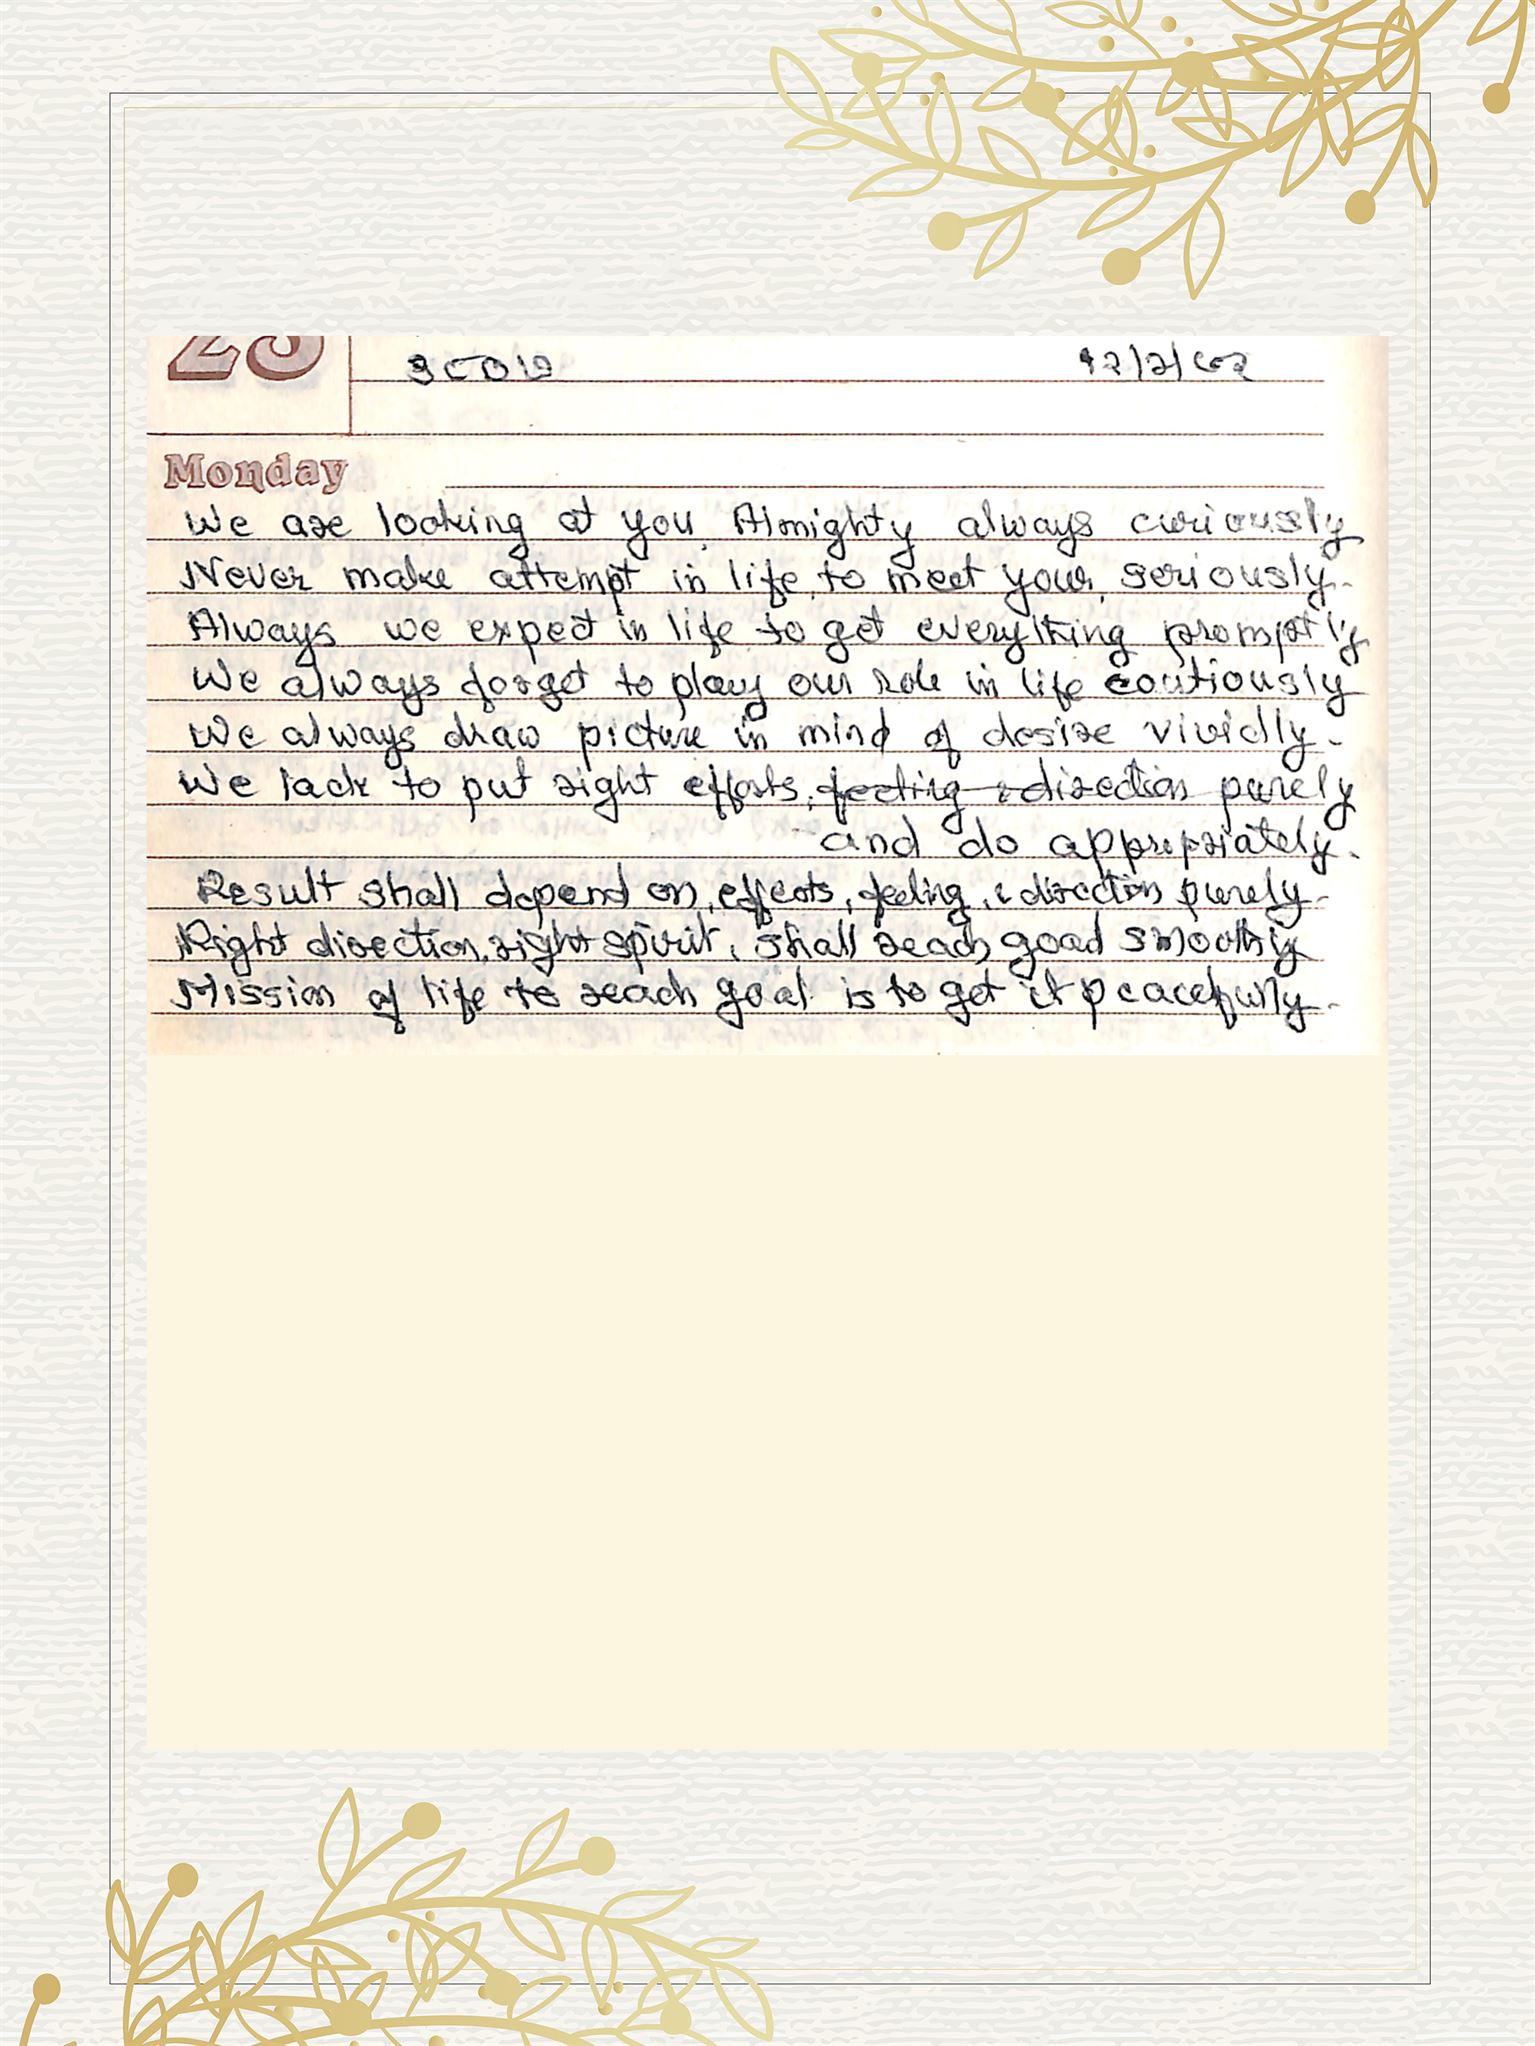 We are looking at you, Almighty always curiously
Never make attempt in life, to meet your, seriously.
Always we expect in life to get everything promptly
We always forget to play our role in life coutiously
We always draw picture in mind of desire vividly.
We lack to put right efforts, feeting & direction purely
and do appropriately.
Result shall depend on, effects, feeling, & direction purely.
Right direction, right spirit, shall reach goad smoothly
Mission of life to reach goal is to get it peacefully.
Monday